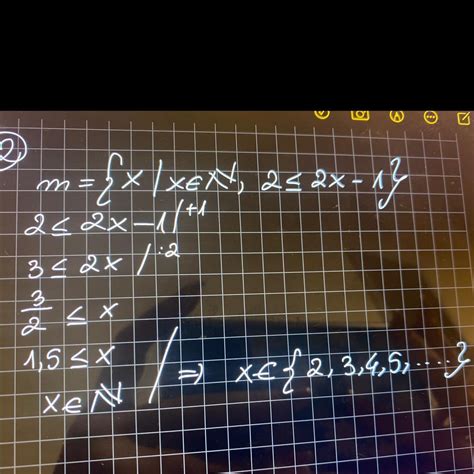 2)
m = { x / x ∈ N, 2 ≤ 2x - 1 }
2 ≤ 2x - 1 / +1
3 ≤ 2x / :2
3/2 ≤ x
1,5 ≤ x
x ∈ N / ⇒ x ∈ { 2, 3, 4, 5, .... }